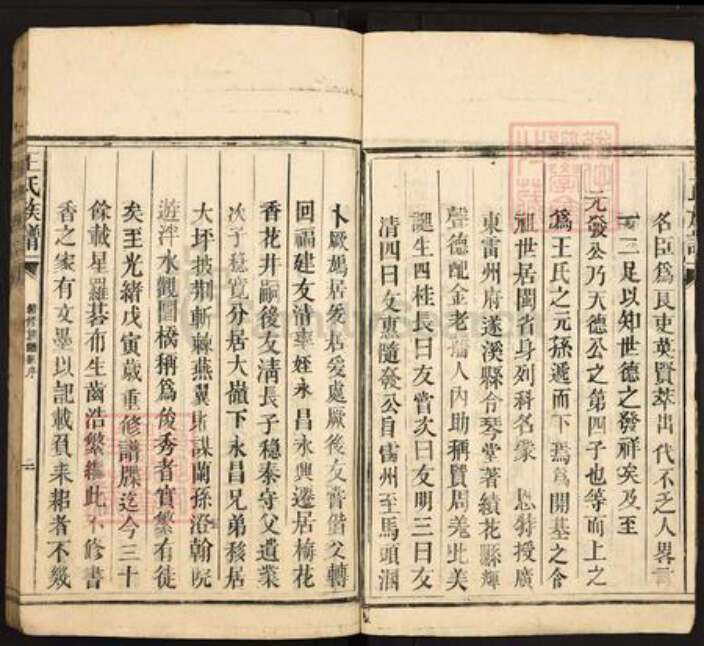 名臣為良吏英賢萃出代不乏人畧言
一二足以知世德之發祥矣及至
元發公乃天德公之第四子也等而上之
為王氏之元孫遞而下焉為開基之令
祖世居閩省身列科名蒙　恩特授廣
東雷州府遂溪縣令琴堂著績花縣輝
聲德配金老孺人內助稱賢周姜比美
誕生四桂長曰友嘗次曰友明三曰友
清四曰友惠隨發公自雷州至馬頭
卜厥鳩居爰居爰處厥後友嘗偕父轉
回福建友清率姪永昌永興遷居梅花
香花井嗣後友清長子穩泰守父遺業
次子穩寬分居大嶺下永昌兄弟移居
大坪披荊斬棘燕翼貽謀蘭孫澄翰院
遊泮水觀圜橋稱為俊秀者實繁有徒
矣至光緒戊寅歲重修譜牒迄今三十
餘載星羅碁布生齒浩繁繼此不修書
香之家有文墨以記載負耒耜者不幾
王氏族譜
序
二